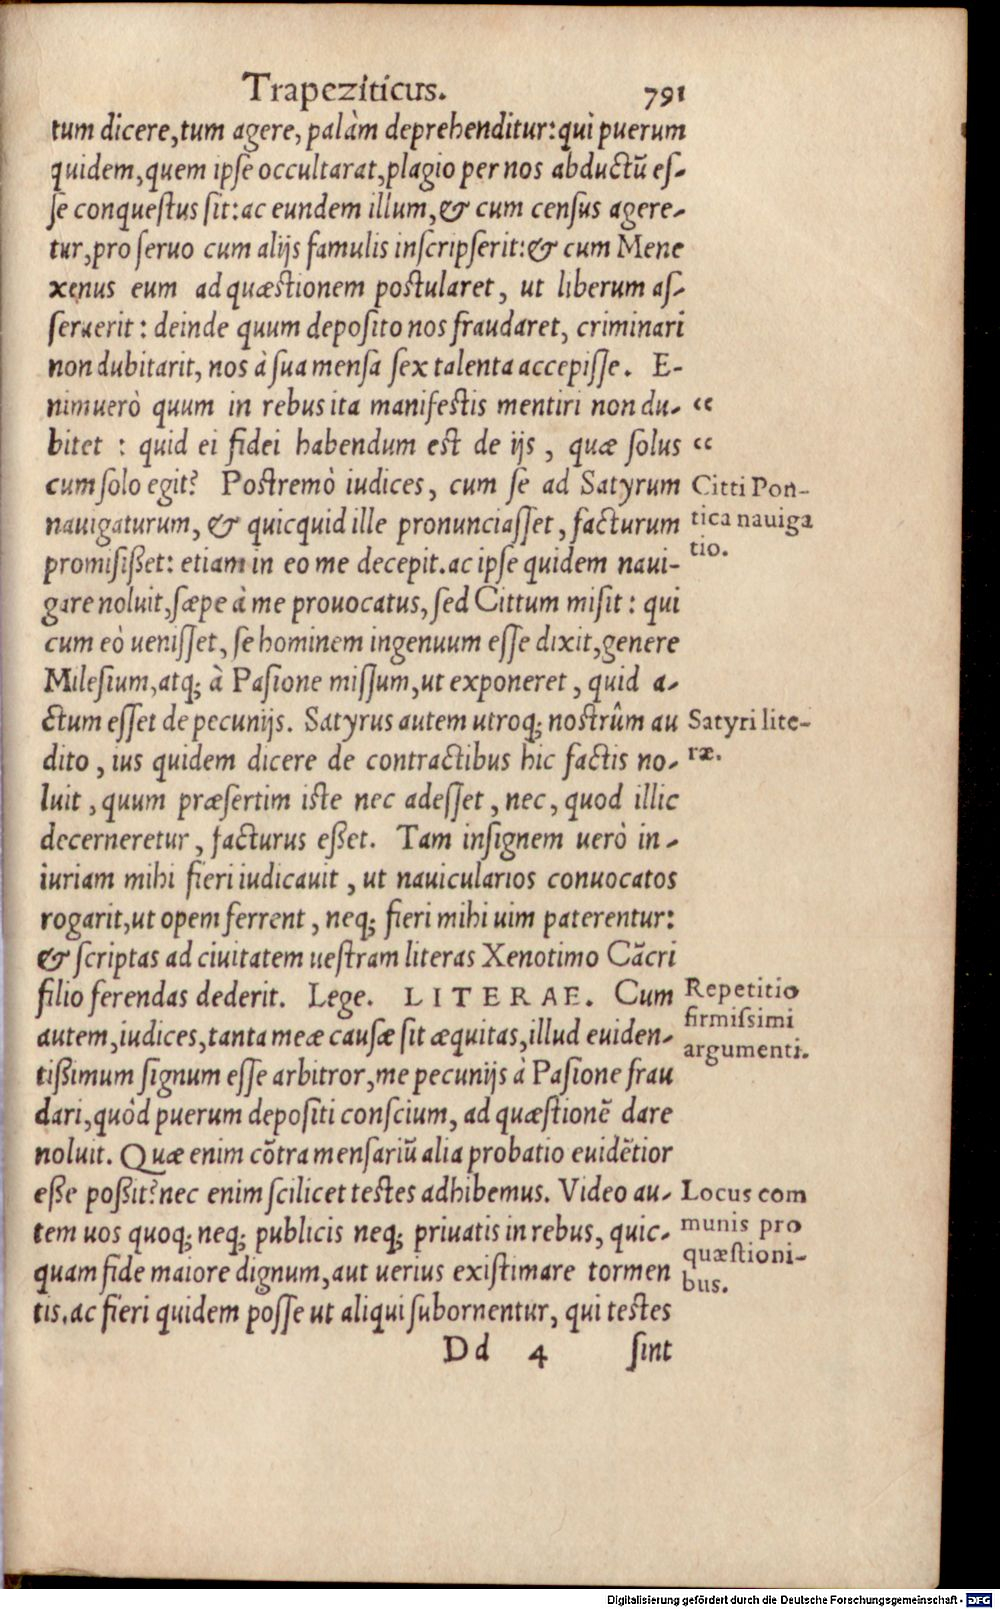 Trapeziticus. 791
tum dicere, tum agere, palàm deprehenditur: qui puerum
quidem, quem ipse occultarat, plagio per nos abductū es-
se conquestus sit: ac eundem illum, & cum census agere-
tur, pro seruo cum alijs famulis inscripserit: & cum Mene
xenus eum ad quæstionem postularet, ut liberum as-
seruerit: deinde quum deposito nos fraudaret, criminari
non dubitarit, nos à sua mensa sex talenta accepisse. E-
nimuerò quum in rebus ita manifestis mentiri non du- “
bitet : quid ei fidei habendum est de ijs, quæ solus “
cum solo egit? Postremò iudices, cum se ad Satyrum
Citti Pon-
nauigaturum, & quicquid ille pronunciasset, facturum
tica nauiga
promisißet: etiam in eo me decepit. ac ipse quidem naui-
tio.
gare noluit, sæpe à me prouocatus, sed Cittum misit: qui
cum eò uenisset, se hominem ingenuum esse dixit, genere
Milesium, atq; à Pasione missum, ut exponeret, quid a-
ctum esset de pecunijs. Satyrus autem utroq; nostrûm au
Satyri lite-
dito, ius quidem dicere de contractibus hic factis no-
ræ.
luit, quum præsertim iste nec adesset, nec, quod illic
decerneretur, facturus eßet. Tam insignem uerò in-
iuriam mihi fieri iudicauit, ut nauicularios conuocatos
rogarit, ut opem ferrent, neq; fieri mihi uim paterentur:
& scriptas ad ciuitatem uestram literas Xenotimo Cãcri
filio ferendas dederit. Lege. LITERAE. Cum
Repetitio
firmissimi
autem, iudices, tanta meæ causæ sit æquitas, illud euiden-
argumenti.
tißimum signum esse arbitror, me pecunijs à Pasione frau
dari, quòd puerum depositi conscium, ad quæstionē dare
noluit. Quæ enim cōtra mensariū alia probatio euidētior
eße poßit? nec enim scilicet testes adhibemus. Video au-
Locus com
tem uos quoq; neq; publicis neq; priuatis in rebus, quic-
munis pro
quam fide maiore dignum, aut uerius existimare tormen
quæstioni-
bus.
tis. ac fieri quidem posse ut aliqui subornentur, qui testes
Dd 4 sint
Digitalisierung gefördert durch die Deutsche Forschungsgemeinschaft - DFG